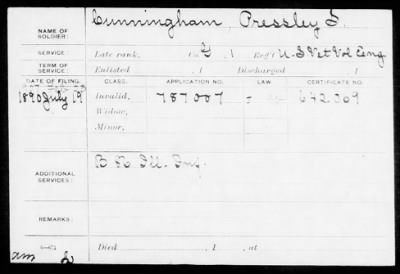 NAME OF SOLDIER: Cunningham Pressley S.
SERVICE: Late rank, Co. G, 1 Reg't U.S. Vet Vol Eng
TERM OF SERVICE: Enlisted 1 Discharged 1
DATE OF FILING. CLASS. APPLICATION NO. LAW. CERTIFICATE NO.
1890 July 19 Invalid, 787.007 642.309
Widow,
Minor,
ADDITIONAL SERVICES: Ill. Inf.
REMARKS:
Died , 1 , at